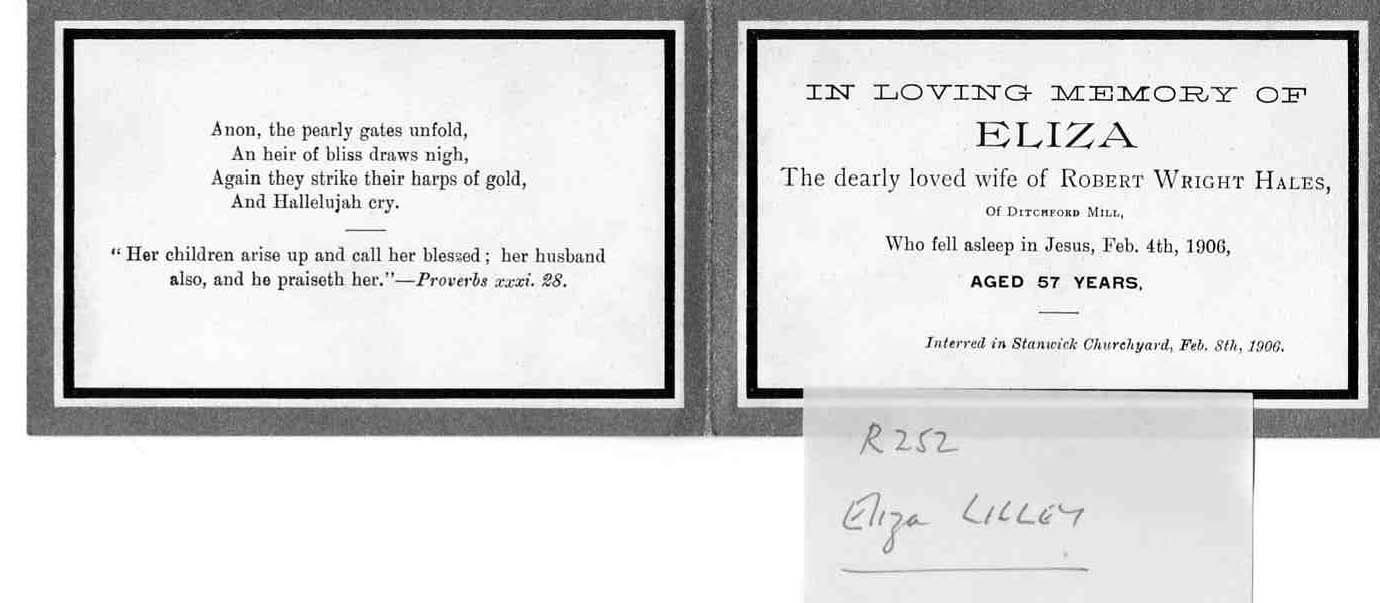 Anon, the pearly gates unfold,
An heir of bliss draws nigh,
Again they strike their harps of gold,
And Hallelujah cry.
“Her children arise up and call her blessed; her husband
also, and he praiseth her.”—Proverbs xxxi. 28.
IN LOVING MEMORY OF
ELIZA
The dearly loved wife of ROBERT WRIGHT HALES,
Of DITCHFORD MILL,
Who fell asleep in Jesus, Feb. 4th, 1906,
AGED 57 YEARS,
Interred in Stanwick Churchyard, Feb. 8th, 1906.
R252
Eliza LILLEY